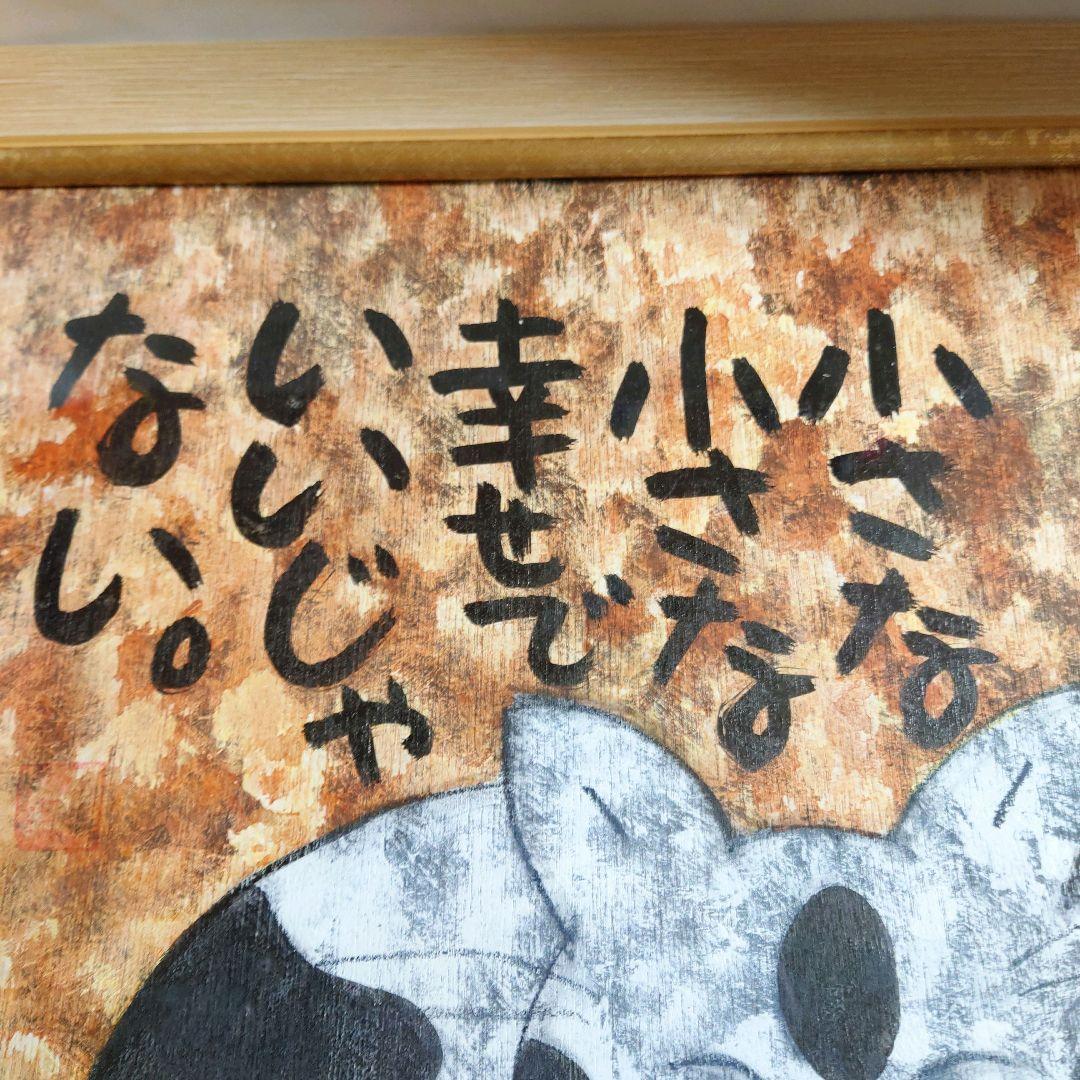 小さな
小さな
幸せで
いいじゃ
ない。